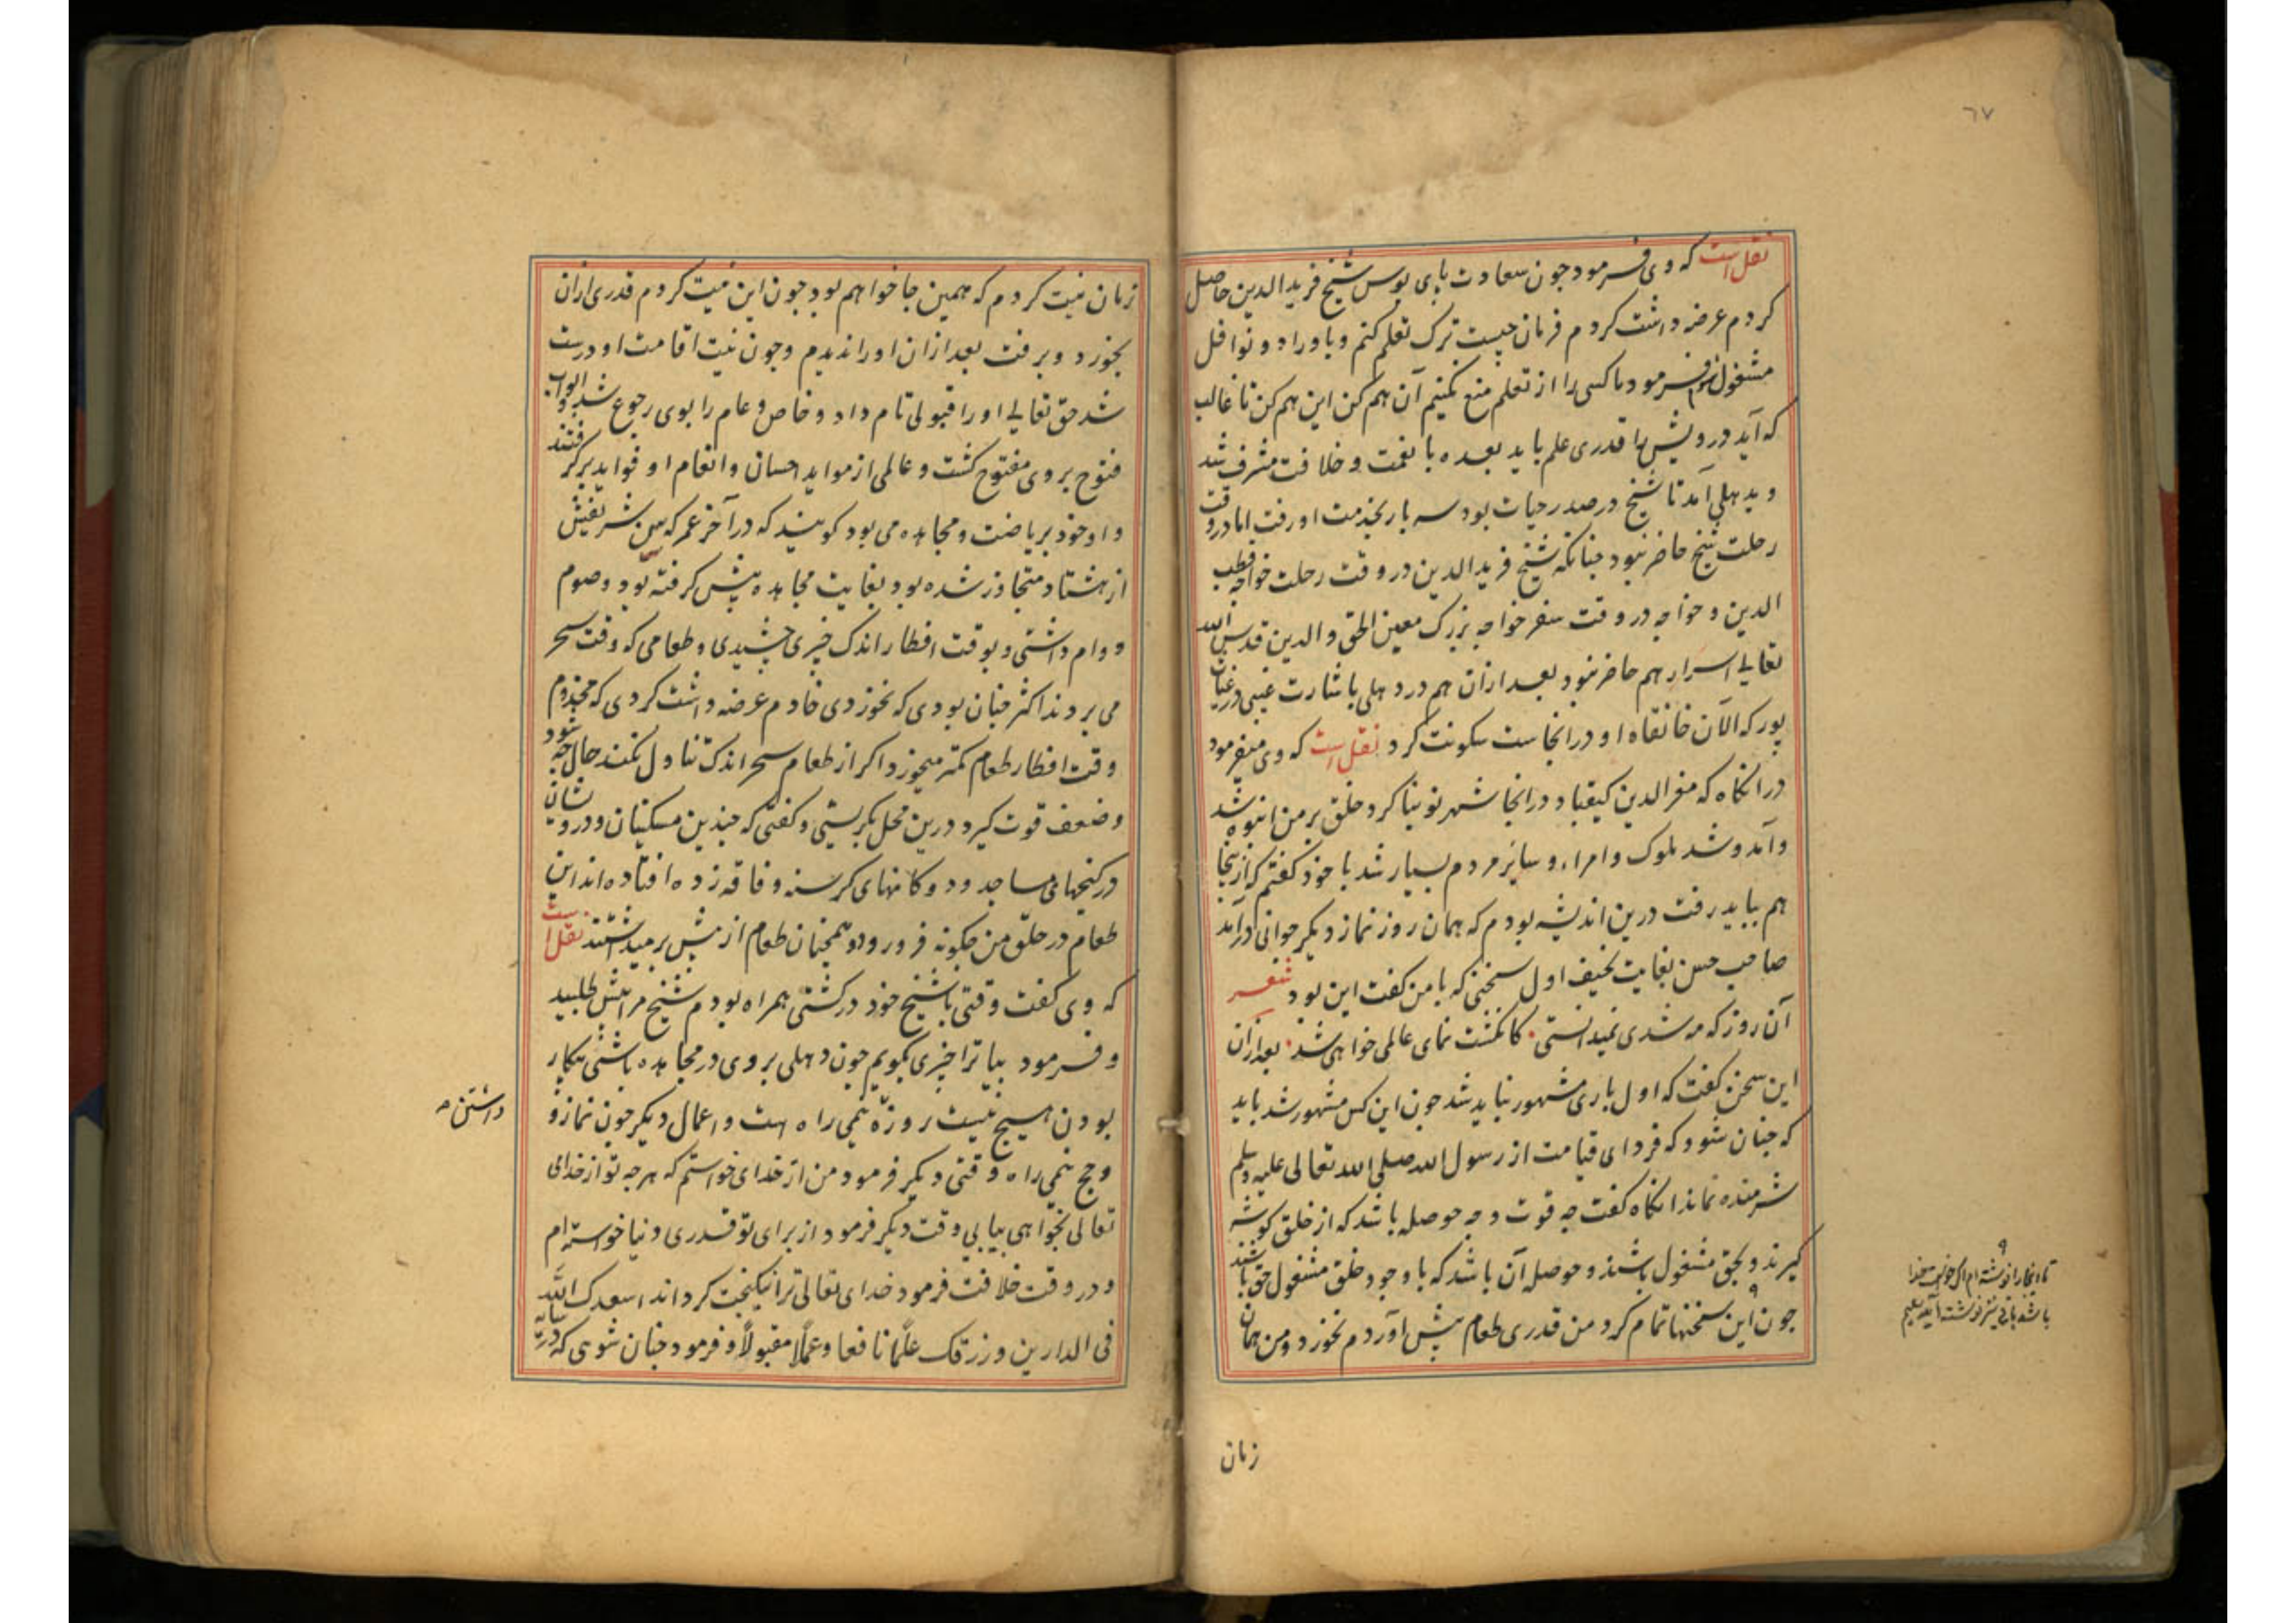 ٦٧
نقل است که وی فرمود چون سعادت پای بوس شیخ فرید الدین حاصل
کردم عرضه داشت کردم فرمان چیست ترک تعلم کنم و باوراد و نوافل
مشغول شوم فرمود ما کسی را از تعلم منع نکنیم آن هم کن این هم کن تا غالب
که آید درویش را قدری علم باید بعده با نعمت و خلافت مشرف شد
و بدهلی آمد تا شیخ در صدر حیات بود سه بار بخدمت او رفت اما در وقت
رحلت شیخ حاضر نبود چنانکه شیخ فرید الدین در وقت رحلت خواجه قطب
الدین و خواجه در وقت سفر خواجه بزرگ معین الحق والدین قدس الله
تعالی اسرارهم حاضر نبود بعد ازان هم در دهلی باشارت غیبی در غیاث
پور که الآن خانقاه او در انجاست سکونت کرد نقل است که وی میفرمود
در انگاه که معز الدین کیقباد در انجا شهر نو بنا کرد خلق بر من انبوه شد
و آمد و شد ملوک و امراء و سایر مردم بسیار شد با خود گفتم که از ینجا
هم بباید رفت درین اندیشه بودم که همان روز نماز دیگر جوانی درآمد
صاحب حسن بغایت نحیف اول سخنی که با من گفت این بود شعر
آن روز که مه شدی نمیدانستی کانگشت نمای عالمی خواهی شد بعد ازان
این سخن گفت که اول باری مشهور نباید شد چون این کس مشهور شد باید
که چنان شود که فردای قیامت از رسول الله صلی الله تعالی علیه وسلم
شرمنده نماند انگاه گفت چه قوت و چه حوصله باشد که از خلق گوشه
گیرند و بحق مشغول باشند و حوصله آن باشد که با وجود خلق مشغول حق باشند
چون این سخنها تمام کرد من قدری طعام پیش آوردم نخورد و من همان
زمان
زمان نیت کردم که همین جا خواهم بود چون این نیت کردم قدری ازان
بخورد و برفت بعد ازان او را ندیدم و چون نیت اقامت او درست
شد حق تعالی او را قبولی تام داد و خاص و عام را بوی رجوع شد و ابواب
فتوح بر وی مفتوح گشت و عالمی از مواید احسان و انعام او فواید برگرفتند
و او خود بریاضت و مجاهده می بود گویند که در آخر عمر که سن شریفش
از هشتاد متجاوز شده بود بغایت مجاهده پیش گرفته بود و صوم
دوام داشتی و بوقت افطار اندک چیزی چشیدی و طعامی که وقت سحر
می بردند اکثر چنان بودی که نخوردی خادم عرضه داشت کردی که مخدوم
وقت افطار طعام کمتر میخورد اگر از طعام سحر اندک تناول نکند حال چه شود
و ضعف قوت گیرد درین محل بگریستی و گفتی که چندین مسکینان و درویشان
در کنجهای مساجد و دوکانهای گرسنه و فاقه زده افتاده اند این
طعام در حلق من چگونه فرو رود و همچنان طعام از پیش برمیداشتند نقل است
که وی گفت وقتی با شیخ خود در کشتی همراه بودم شیخ مرا پیش طلبید
و فرمود بیا ترا چیزی بگویم چون دهلی بروی در مجاهده باشی بیکار
بودن هیچ نیست روزه نیمی راه است و اعمال دیگر چون نماز و
داشتن
و حج نیمی راه وقتی دیگر فرمود من از خدای خواستم که هر چه تو از خدای
تعالی بخواهی بیابی وقت دیگر فرمود از برای تو قدری دنیا خواسته ام
و در وقت خلافت فرمود خدای تعالی ترا نیکبخت گرداند اسعدک الله
فی الدارین و رزقک علما نافعا و عملا مقبولا و فرمود چنان شوی که در سایه